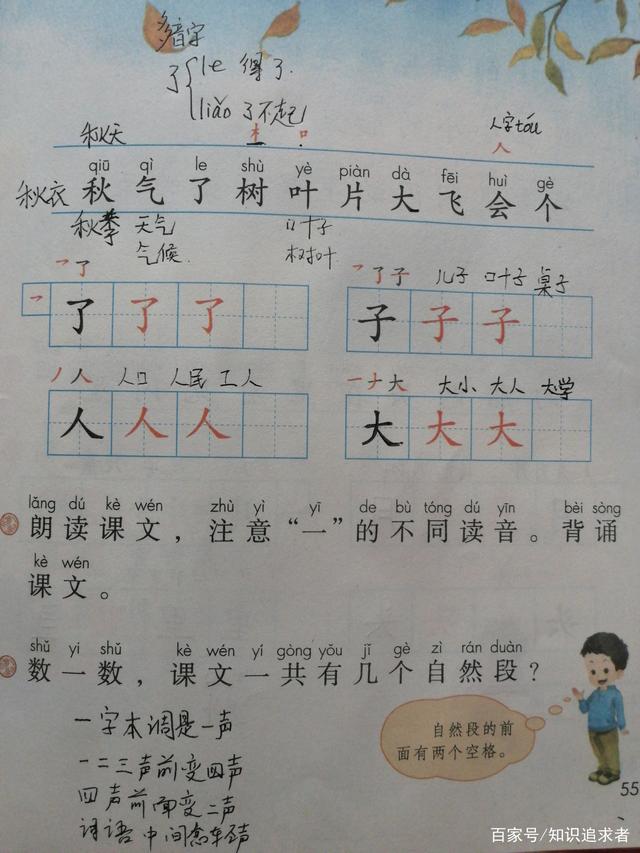 多音字
了{le 得了.
liǎo 了不起
秋天 木 口 人字tóu
人
qiū qì le shù yè piàn dà fēi huì gè
秋衣 秋 气 了 树 叶 片 大 飞 会 个
秋季 天气 叶子
气候 树叶
㇇了 ㇇了子 儿子 叶子 桌子
㇇ 了 了 了 子 子 子
丿人 人口 人民 工人 一ナ大 大小 大人 大学
人 人 人 大 大 大
lǎng dú kè wén zhù yì yī de bù tóng dú yīn bèi sòng
朗读课文，注意“一”的不同读音。背诵
kè wén
课文。
shǔ yi shǔ kè wén yí gòng yǒu jǐ gè zì rán duàn
数一数，课文一共有几个自然段？
一字本调是一声
自然段的前
面有两个空格。
一二三声前变四声
四声前面变二声
词语中间念轻声
55
百家号/知识追求者